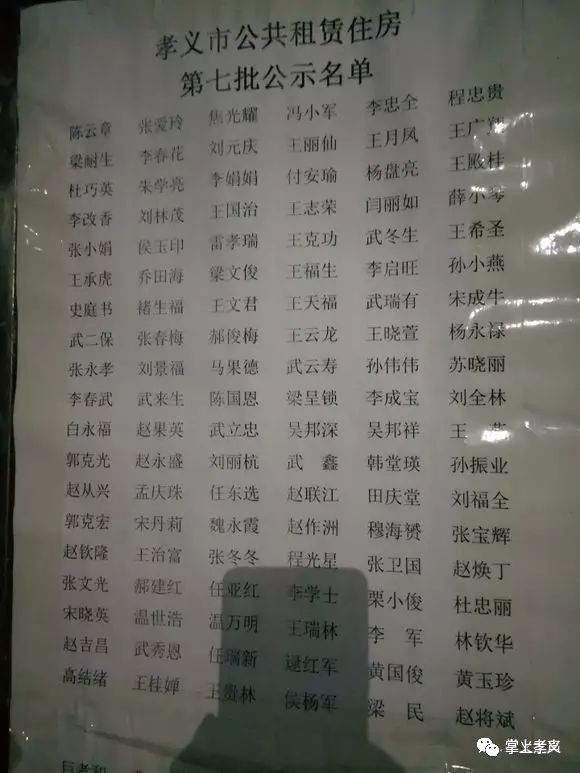 孝义市公共租赁住房
第七批公示名单
陈云章 张爱玲 焦光耀 冯小军 李忠全 程忠贵
梁耐生 李春花 刘元庆 王丽仙 王月凤 王广翔
杜巧英 朱学亮 李娟娟 付安瑜 杨盘亮 王殿桂
李改香 刘林茂 王国治 王志荣 闫丽如 薛小琴
张小娟 侯玉印 雷孝瑞 王克功 武冬生 王希圣
王承虎 乔田海 梁文俊 王福生 李启旺 孙小燕
史庭书 褚生福 王文君 王天福 武瑞有 宋成牛
武二保 张春梅 郝俊梅 王云龙 王晓萱 杨永禄
张永孝 刘景福 马果德 武云寿 孙伟伟 苏晓丽
李春武 武来生 陈国恩 梁呈锁 李成宝 刘全林
白永福 赵果英 武立忠 吴邦深 吴邦祥 王 燕
郭克光 赵永盛 刘丽杭 武 鑫 韩堂瑛 孙振业
赵从兴 孟庆珠 任东选 赵联江 田庆堂 刘福全
郭克宏 宋丹莉 魏永霞 赵作洲 穆海赟 张宝辉
赵钦隆 王治富 张冬冬 程光星 张卫国 赵焕丁
张文光 郝建红 任亚红 李学士 栗小俊 杜忠丽
宋晓英 温世浩 温万明 王瑞林 李 军 林钦华
赵吉昌 武秀恩 任瑞新 逯红军 黄国俊 黄玉珍
高结绪 王桂婵 王贵林 侯杨军 梁 民 赵将斌
掌上孝离